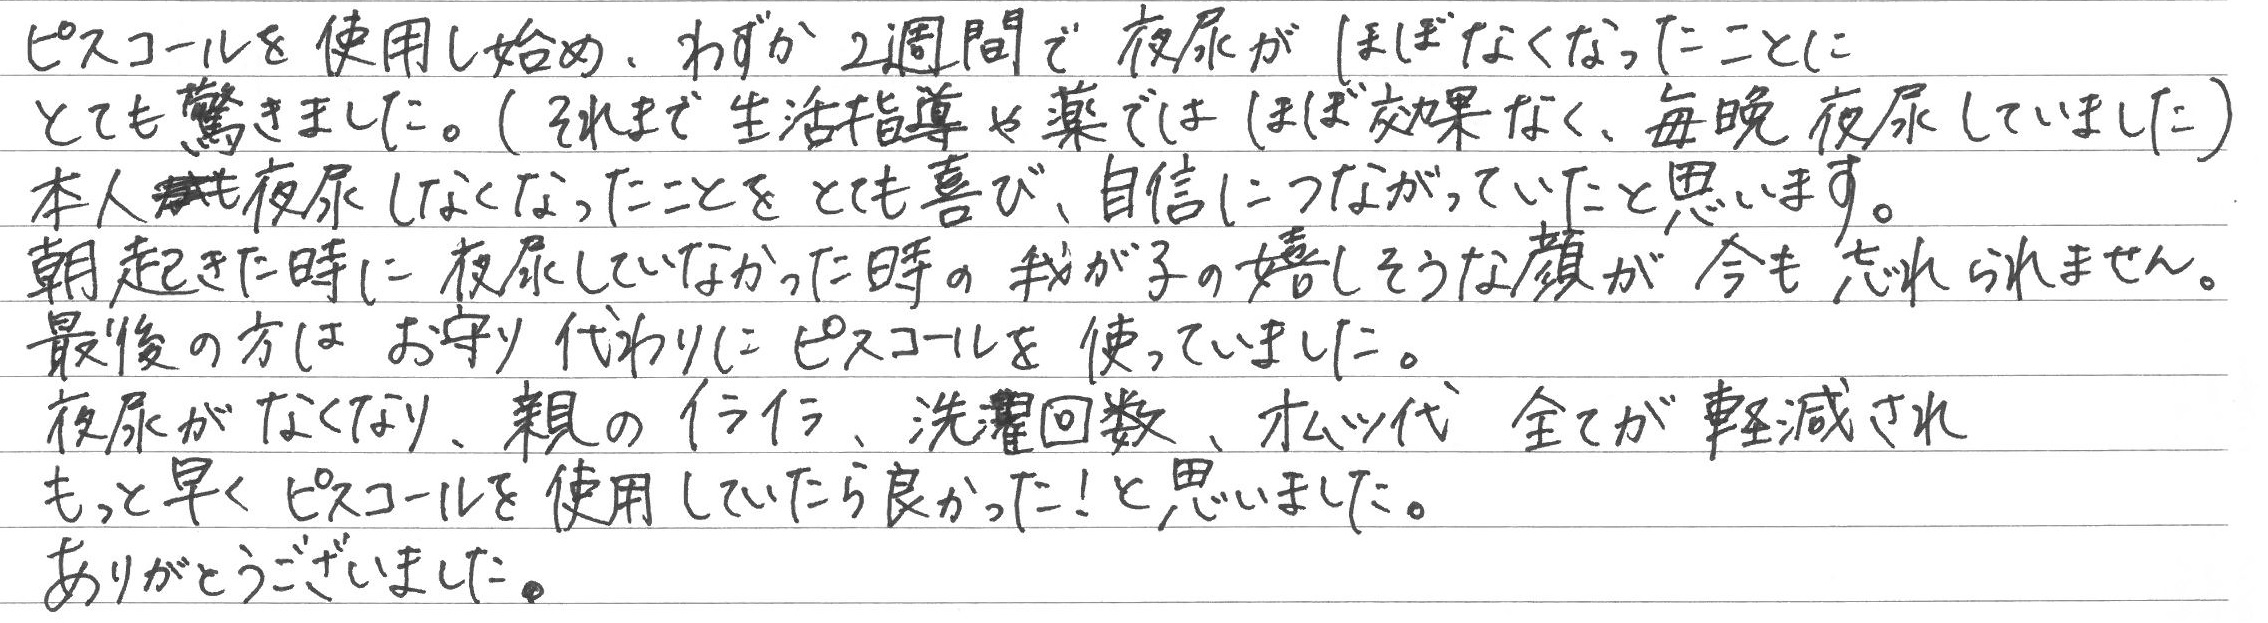 ピスコールを使用し始め、わずか2週間で夜尿がほぼなくなったことに
とても驚きました。(それまで生活指導や薬ではほぼ効果なく、毎晩夜尿していました)
本人も夜尿しなくなったことをとても喜び、自信につながっていたと思います。
朝起きた時に夜尿していなかった時の我が子の嬉しそうな顔が今も忘れられません。
最後の方はお守り代わりにピスコールを使っていました。
夜尿がなくなり、親のイライラ、洗濯回数、オムツ代 全てが軽減され
もっと早くピスコールを使用していたら良かった!と思いました。
ありがとうございました。